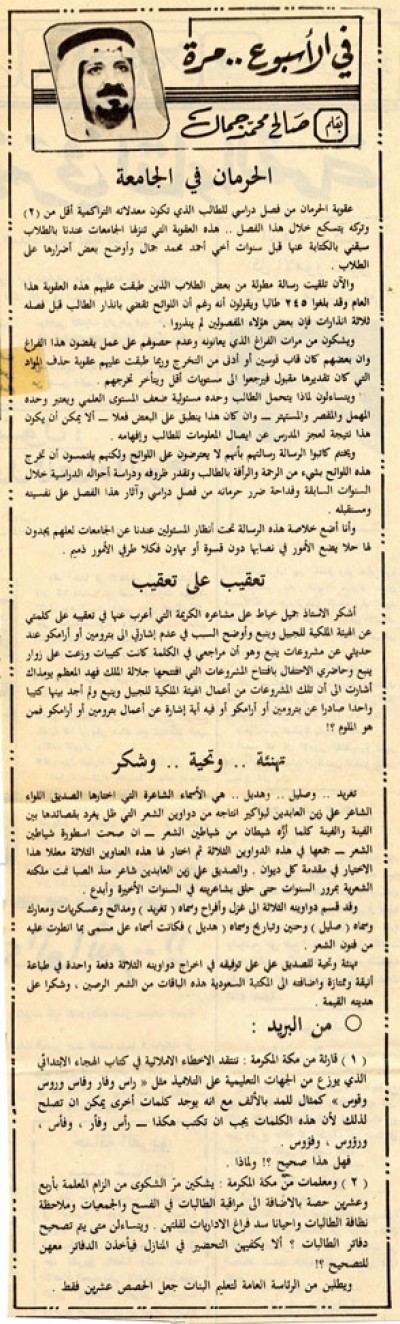 في الأسبوع .. مرة
بقلم صالح محمد جمال
الحرمان في الجامعة
عقوبة الحرمان من فصل دراسي للطالب الذي تكون معدلاته التراكمية أقل من (٢)
وتركه يتسكع خلال هذا الفصل .. هذه العقوبة التي تنزلها الجامعات عندنا بالطلاب
سبقني بالكتابة عنها قبل سنوات أخي أحمد محمد جمال وأوضح بعض أضرارها على
الطلاب .
والآن تلقيت رسالة مطولة من بعض الطلاب الذين طبقت عليهم هذه العقوبة هذا
العام وقد بلغوا ٢٤٥ طالبا ويقولون أنه رغم أن اللوائح تقضي بانذار الطالب قبل فصله
ثلاثة انذارات فإن بعض هؤلاء المفصولين لم ينذروا .
ويشكون من مرات الفراغ الذي يعانونه وعدم حصولهم على عمل يقضون بهذا الفراغ
وان بعضهم كان قاب قوسين أو أدنى من التخرج وربما طبقت عليهم عقوبة حذف المواد
التي كان تقديرها مقبول فيرجعوا الى مستويات أقل ويتأخر تخرجهم .
ويتساءلون لماذا يتحمل الطالب وحده مسئولية ضعف المستوى العلمي ويعتبر وحده
المهمل والمقصر والمستهتر ــ وان كان هذا ينطبق على البعض فعلا ــ ألا يمكن أن يكون
هذا نتيجة لعجز المدرس عن ايصال المعلومات للطالب وإفهامه .
ويختم كاتبوا الرسالة رسالتهم بأنهم لا يعترضون على اللوائح ولكنهم يلتمسون أن تخرج
هذه اللوائح بشيء من الرحمة والرأفة بالطالب وتقدر ظروفه ودراسة أحواله الدراسية خلال
السنوات السابقة وفداحة ضرر حرمانه من فصل دراسي وآثار هذا الفصل على نفسيته
ومستقبله .
وأنا أضع خلاصة هذه الرسالة تحت أنظار المسئولين عندنا عن الجامعات لعلهم يجدون
لها حلا يضع الأمور في نصابها دون قسوة أو تهاون فكلا طرفي الأمور ذميم .
تعقيب على تعقيب
أشكر الاستاذ جميل خياط على مشاعره الكريمة التي أعرب عنها في تعقيبه على كلمتي
عن الهيئة الملكية للجبيل وينبع وأوضح السبب في عدم إشارتي الى بترومين أو أرامكو عند
حديثي عن مشروعات ينبع وهو أن مراجعي في الكلمة كانت كتيبات وزعت على زوار
ينبع وحاضري الاحتفال بافتتاح المشروعات التي افتتحها جلالة الملك فهد المعظم يومذاك
أشارت الى أن تلك المشروعات من أعمال الهيئة الملكية للجبيل وينبع ولم أجد بينها كتيبا
واحدا صادرا عن بترومين أو أرامكو أو فيه أية إشارة عن أعمال بترومين أو أرامكو فمن
هو الملوم ؟!
تهنئة .. وتحية .. وشكر
تغريد .. وصليل .. وهديل .. هي الأسماء الشاعرة التي اختارها الصديق اللواء
الشاعر على زين العابدين لبواكير انتاجه من دواوين الشعر التي ظل يغرد بقصائدها بين
الفينة والفينة كلما أزّه شيطان من شياطين الشعر ــ ان صحت اسطورة شياطين
الشعر ــ جمعها في هذه الدواوين الثلاثة ثم اختار لها هذه العناوين الثلاثة معللا هذا
الاختيار في مقدمة كل ديوان . والصديق علي زين العابدين شاعر منذ الصبا نمت ملكته
الشعرية بمرور السنوات حتى حلق بشاعريته في السنوات الأخيرة وأبدع .
وقد قسم دواوينه الثلاثة الى غزل وأفراح وسماه ( تغريد ) ومدائح وعسكريات ومعارك
وسماه ( صليل ) وحنين وتباريح وسماه ( هديل ) فكانت أسماء على مسمى بما انطوت عليه
من فنون الشعر .
تهنئة وتحية للصديق علي على توفيقه في اخراج دواوينه الثلاثة دفعة واحدة في طباعة
أنيقة وممتازة واضافته الى المكتبة السعودية هذه الباقات من الشعر الرصين ، وشكرا على
هديته القيمة .
○ من البريد :
( ١ ) قارئة من مكة المكرمة : تنتقد الاخطاء الاملائية في كتاب الهجاء الابتدائي
الذي يوزع من الجهات التعليمية على التلاميذ مثل « راس وفار وفاس وروس
وفوس » كمثال للمد بالألف مع انه يوجد كلمات أخرى يمكن ان تصلح
لذلك لأن هذه الكلمات يجب ان تكتب هكذا ــ رأس وفأر ، وفأس ،
ورؤوس ، وفؤوس .
فهل هذا صحيح ؟! ولماذا .
( ٢ ) ومعلمات من مكة المكرمة : يشكين مرّ الشكوى من الزام المعلمة بأربع
وعشرين حصة بالاضافة الى مراقبة الطالبات في الفسح والجمعيات وملاحظة
نظافة الطالبات واحيانا سد فراغ الاداريات لقلتهن . ويتساءلن متى يتم تصحيح
دفاتر الطالبات ؟ ألا يكفيهن التحضير في المنازل فيأخذن الدفاتر معهن
للتصحيح ؟!
ويطلبن من الرئاسة العامة لتعليم البنات جعل الحصص عشرين فقط .